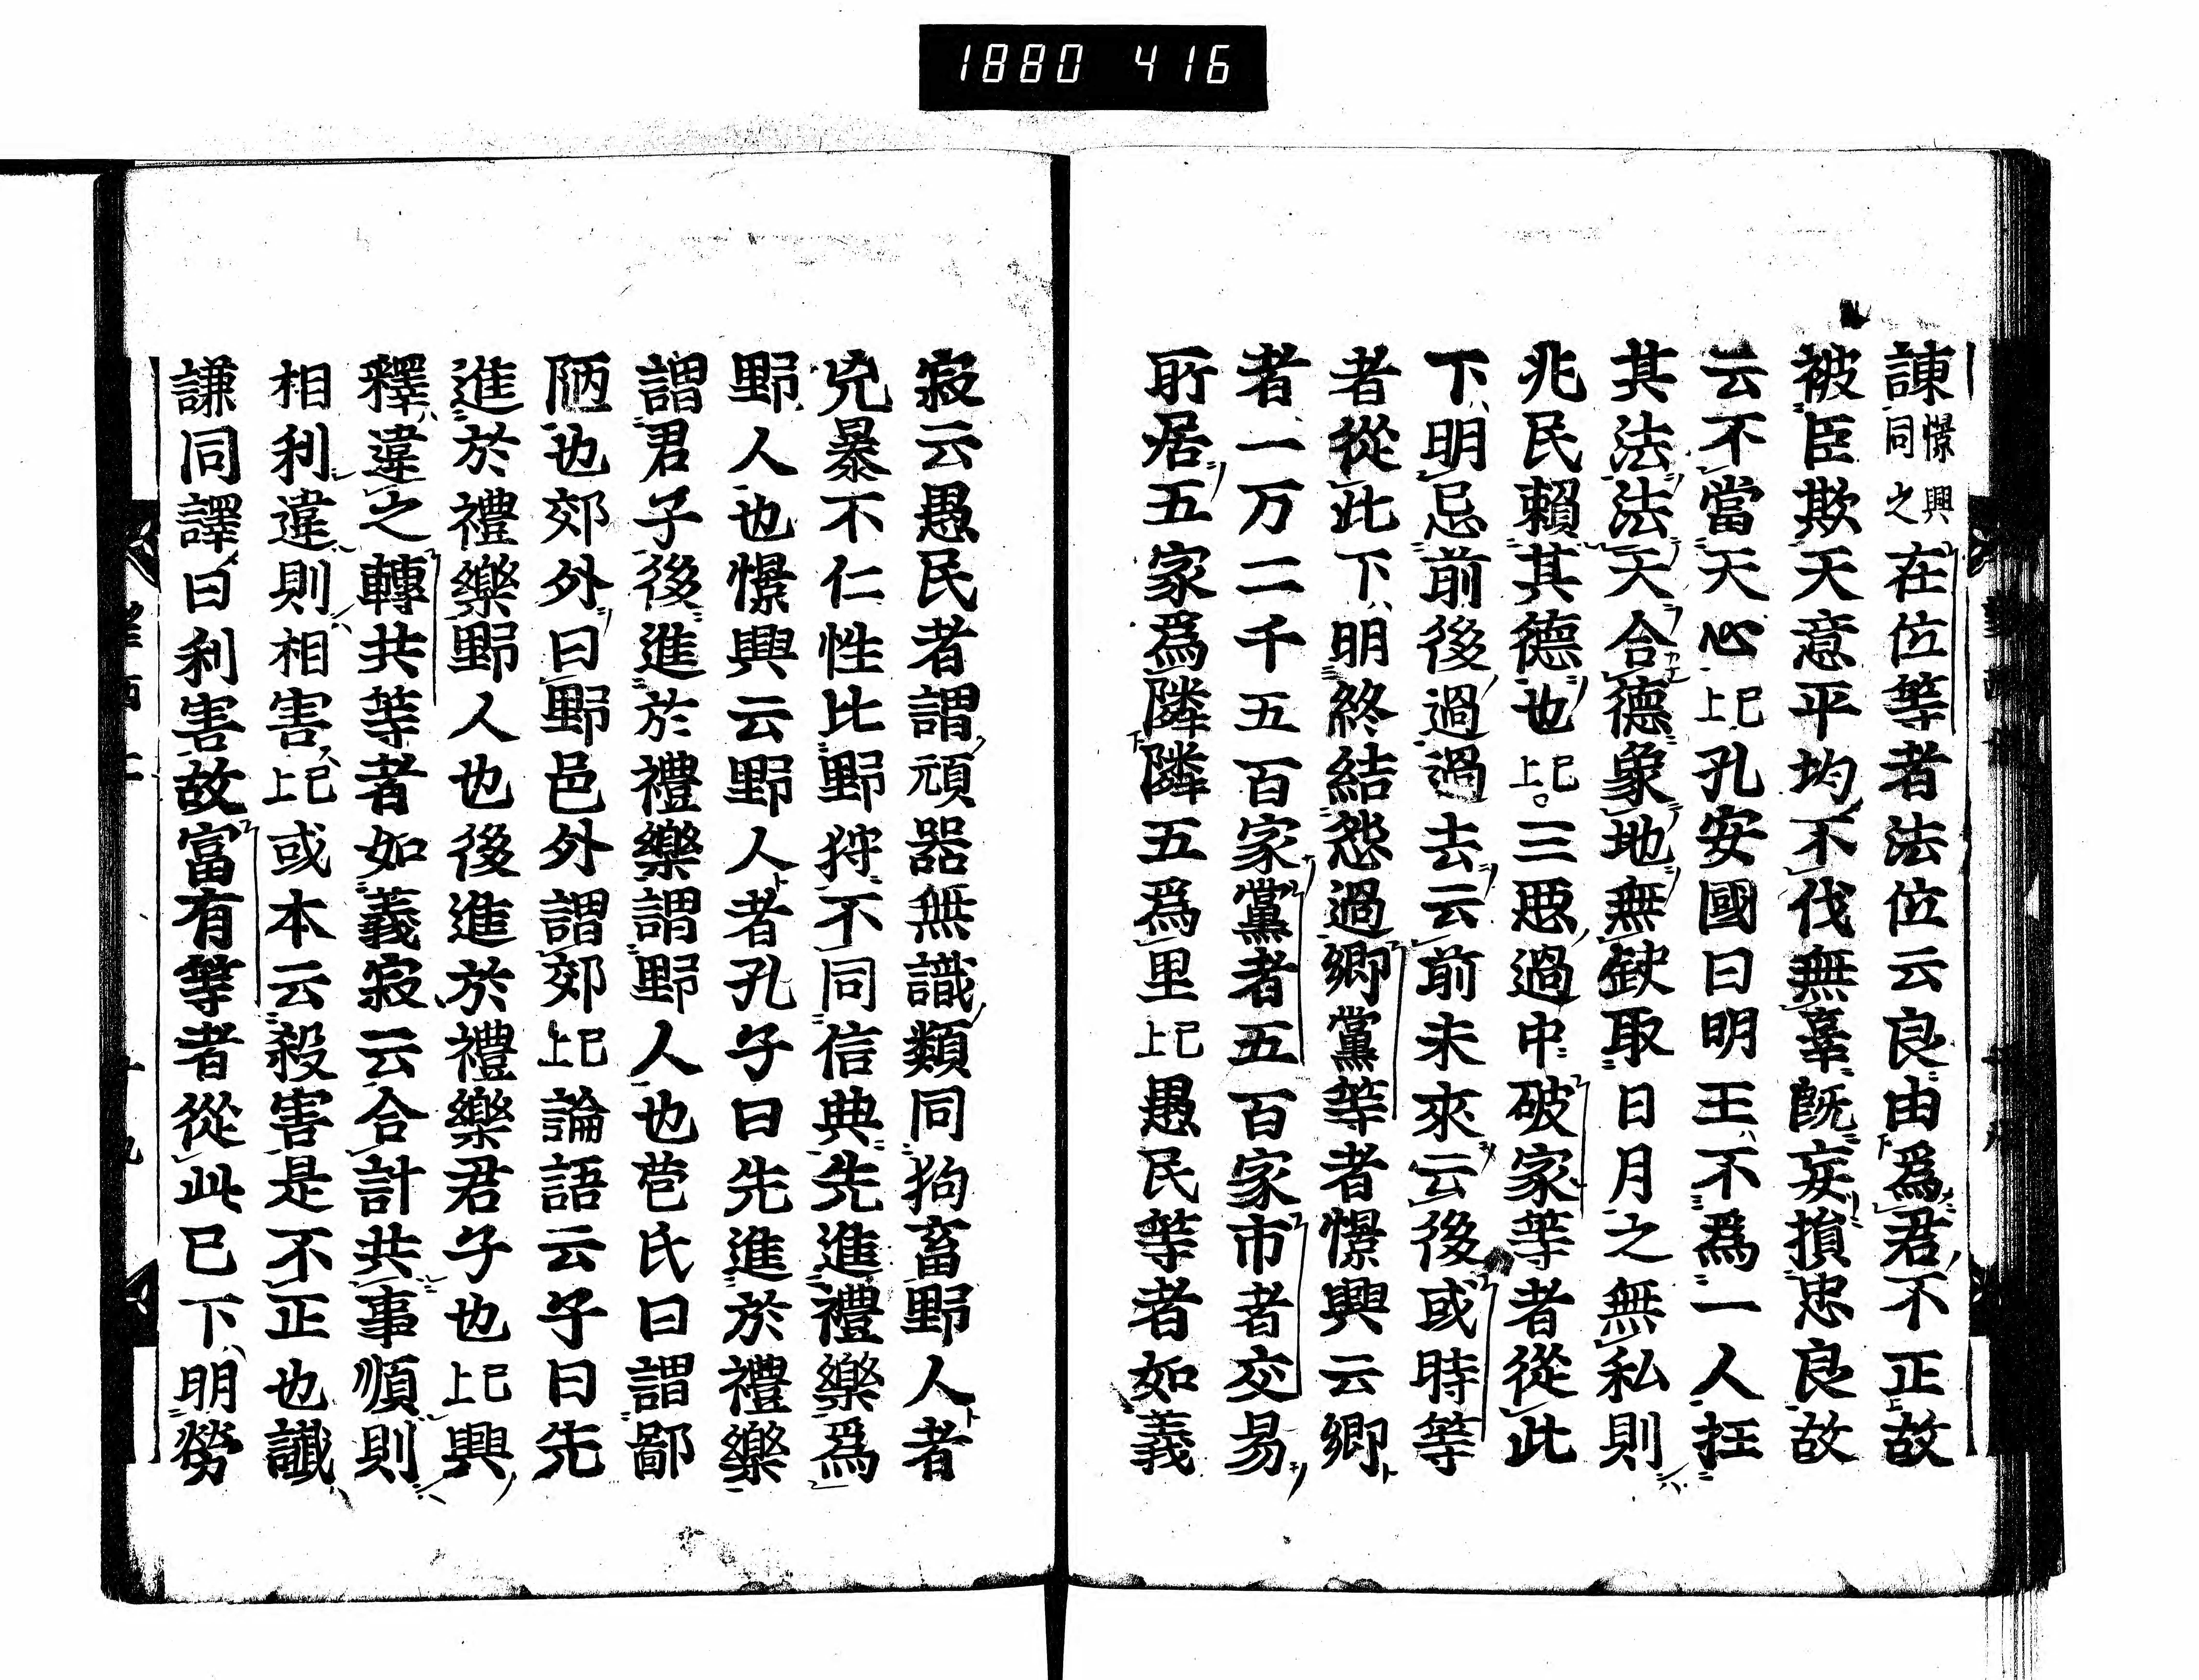 1880 416
諫憬興同之在位等者法位云良由爲君不正故
被臣欺天意平均不伐無辜既妄損忠良故
云不當天心已上孔安國曰明王不爲一人枉
其法法天合德象地無缺取日月之無私則
兆民賴其德也已上三惡過中破家等者從此
下明忌前後過過去云前未來云後或時等
者從此下明終結怨過鄉黨等者憬興云鄉
者一万二千五百家黨者五百家市者交易
所居五家爲隣隣五爲里已上愚民等者如義
寂云愚民者謂頑嚚無識類同狗畜野人者
兇暴不仁性比野狩不同信典先進禮樂爲
野人也憬興云野人者孔子曰先進於禮樂
謂君子後進於禮樂謂野人也苞氏曰謂鄙
陋也郊外曰野邑外謂郊已上論語云子曰先
進於禮樂野人也後進於禮樂君子也已上興
釋違之轉共等者如義寂云合計共事順則
相利違則相害已上或本云殺害是不正也讖
謙同譯曰利害故富有等者從此已下明勞